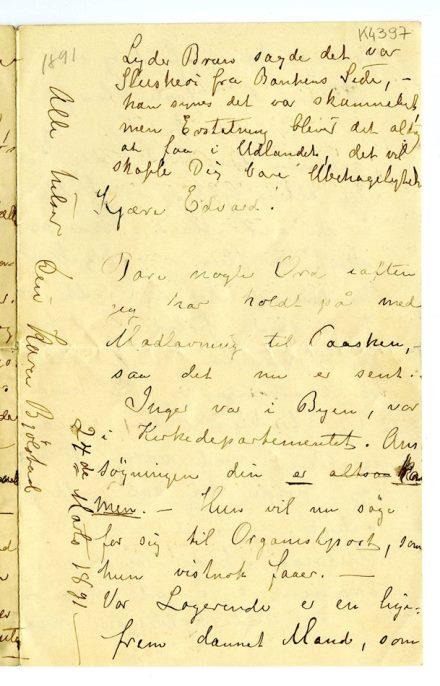 K4397
1891
Lyder Brun sagde det var
Sluskeri fra Bankens Side, –
han synes det var skammeligt
men Erstatning bliver det aldrig
at faa i Udlandet, det vil
skaffe Dig bare Ubehagelighed
Kjære Edvard!
Bare nogle Ord iaften
jeg har holdt på med
Madlavning til Paasken, –
saa det nu er sent.
Inger var i Byen, var
i Kirkedepartementet. Ans
søgningen din er altsaa
men. – Hun vil nu søge
for sig til Organistpost, som
hun vistnok faaer. –
Vor Logerende er en lige-
frem dannet Mand, som
Alle hilser Din Karen Bjølstad
24de Marts 1891